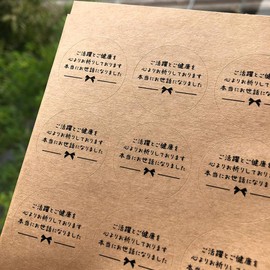 ご活躍とご健康を
心よりお祈りしております
本当にお世話になりました
ご活躍とご健康を
心よりお祈りしております
本当にお世話になりました
ご活躍と
心よりお祈り
本当にお世話に
ご活躍とご健康を
心よりお祈りしております
本当にお世話になりました
ご活躍とご健康を
心よりお祈りしております
本当にお世話になりました
ご活躍と
心よりお祈りして
本当にお世話になり
ご活躍とご健康を
心よりお祈りしております
本当にお世話になりました
ご活躍とご健康を
心よりお祈りしております
本当にお世話になりました
ご活躍とご健康
心よりお祈りしており
本当にお世話になりま